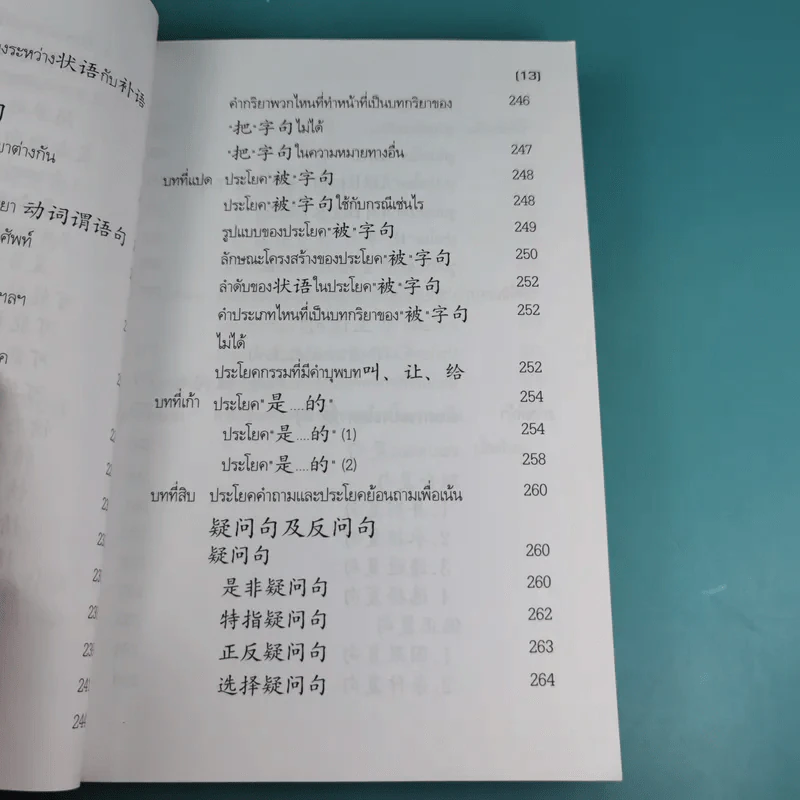 งระหว่าง状语กับ补语
句
ยาต่างกัน
ยา 动词谓语句
ศัพท์
ฯลฯ
ค
23
24
(13)
คำกริยาพวกไหนที่ทำหน้าที่เป็นบทกริยาของ 246
"把"字句ไม่ได้
"把"字句ในความหมายทางอื่น 247
บทที่แปด ประโยค"被"字句 248
ประโยค"被"字句ใช้กับกรณีเช่นไร 248
รูปแบบของประโยค"被"字句 249
ลักษณะโครงสร้างของประโยค"被"字句 250
ลำดับของ状语ในประโยค"被"字句 252
คำประเภทไหนที่เป็นบทกริยาของ"被"字句 252
ไม่ได้
ประโยคกรรมที่มีคำบุพบท叫、让、给 252
บทที่เก้า ประโยค"是....的" 254
ประโยค"是....的" (1) 254
ประโยค"是....的" (2) 258
บทที่สิบ ประโยคคำถามและประโยคย้อนถามเพื่อเน้น 260
疑问句及反问句
疑问句 260
是非疑问句 260
特指疑问句 262
正反疑问句 263
选择疑问句 264